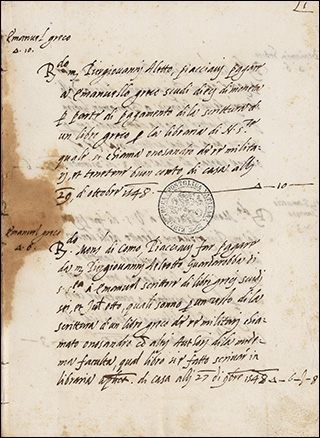 11
emanuel greco
△. 10.
R.do m. Piergiovanni Aleotto, piacciavi pagare
a emanuello greco scudi dieci di moneta
p. parte di pagamento de la scrittura di
un libro greco p. la libraria di N. S.re
quale si chiama onosandro de re militari
et tenetene buon conto di casa alli
29 d'ottobre 1548. — △ — 10 —
emanuel greco
△. 6.
R.do Mons. di Como Piacciavi far pagare
da m. Piergiovanni Aleotto Guardarobba di
S. S.ta a emanuel scrittore di libri greci scudi
sei, et otto, quali sono p. resto de la
scrittura d'un libro greco de re militari chia
mato onosandro et altri Authori de la mede
ma faculta, qual libro si è fatto scriver in
libraria di casa alli 27 di 9bre 1548 — △ — 6 — 8